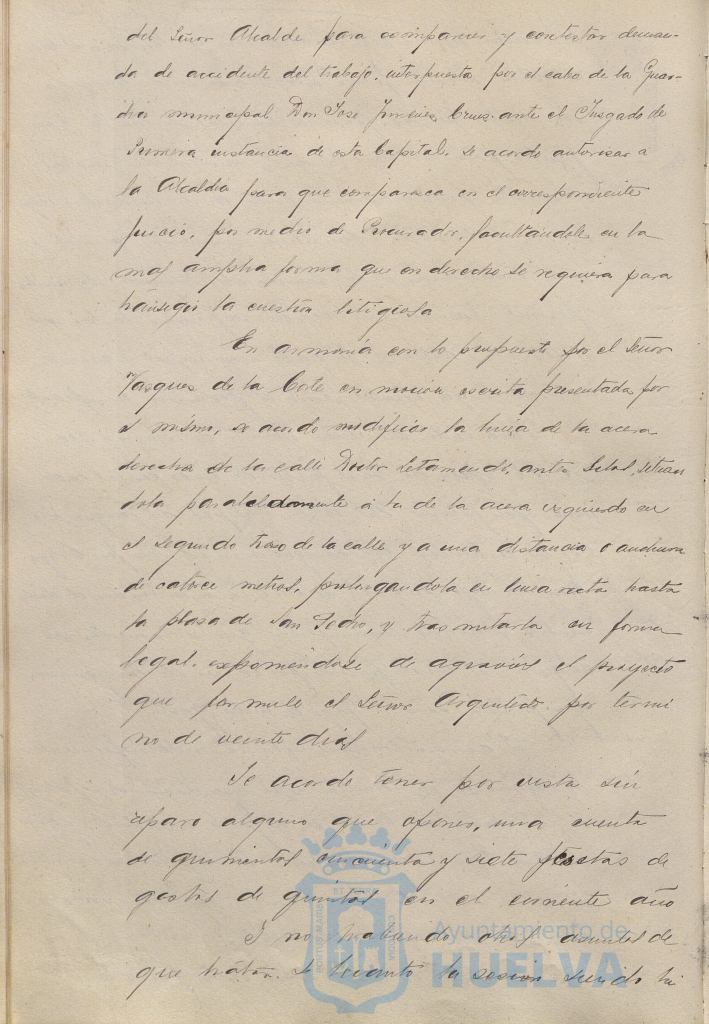 del Señor Alcalde para comparecer y contestar deman-
da de accidente del trabajo, interpuesta por el cabo de la Guar-
dia municipal Don Jose Jimenes Cruz ante el Jusgado de
Primera instancia de esta Capital, se acordó autorisar a
la Alcaldia para que comparesca en el correspondiente
juicio, por medio de Procurador, facultándole en la
mas amplia forma que en derecho se requiera para
transigir la cuestión litigiosa
En armonía con lo propuesto por el Señor
Vasques de la Corte en moción escrita presentada por
el mismo, se acordó modificar la linea de la acera
derecha de la calle Doctor Letamendi, antes Silos, situan
dola paralelamente a la de la acera izquierda en
el segundo traso de la calle y a una distancia o anchura
de catorce metros, prolongandola en linea recta hasta
la plasa de San Pedro, y tramitarla en forma
legal, exponiéndose de agravios el proyecto
que formule el Señor Arquitecto por termi
no de veinte dias
Se acordó tener por vista sin
reparo alguno que oponer, una cuenta
de quinientas cincuenta y siete pesetas de
gastos de quintas en el corriente año
I no habiendo otros asuntos de
que tratar, se levantó la sesion siendo la
Ayuntamiento de
HUELVA